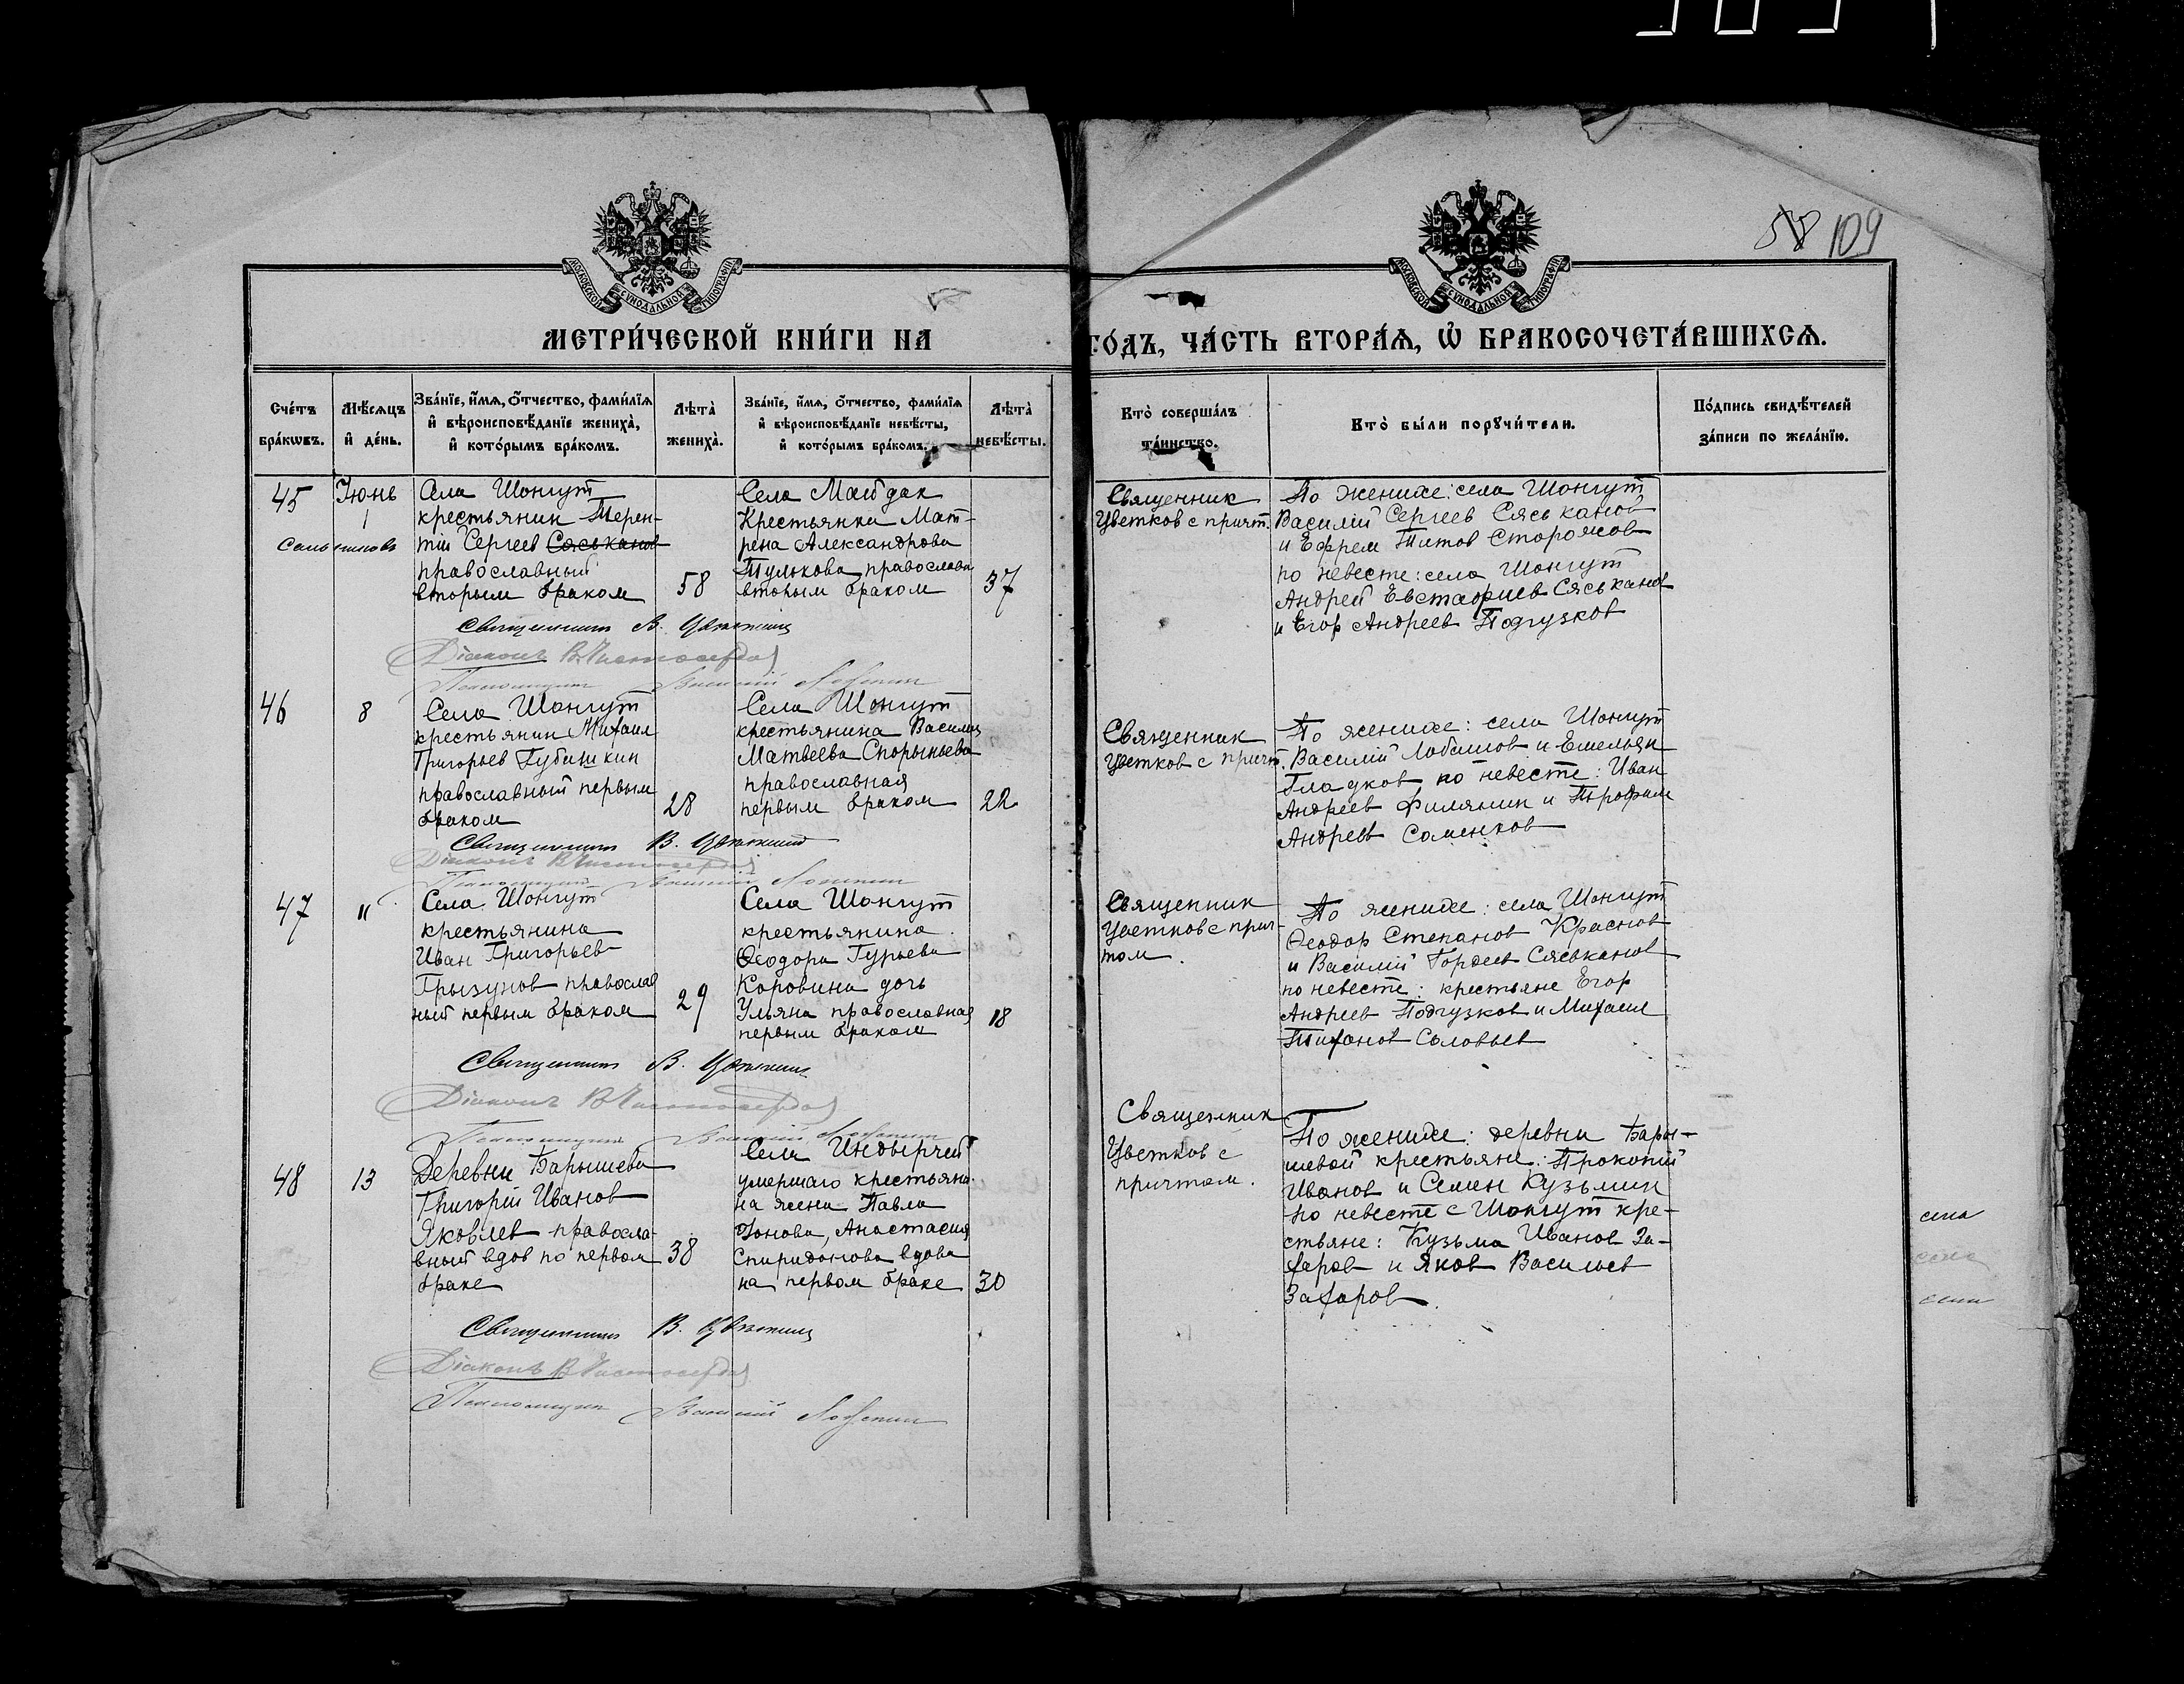 58 109
МОСКОВСКОЙ СѴНОДАЛЬНОЙ ТИПОГРАФІИ
МОСКОВСКОЙ СѴНОДАЛЬНОЙ ТИПОГРАФІИ
МЕТРИ́ЧЕСКОЙ КНИ́ГИ НА
ГО́ДЪ, ЧА́СТЬ ВТОРА́Ѧ, Ѽ БРАКОСОЧЕТА́ВШИХСѦ.
Сче́тъ
бра́кѡвъ.
Мѣ́сѧцъ
и҆ де́нь.
Зва́нїе, и҆́мѧ, ѻ҆́тчество, фами́лїѧ
и҆ вѣроисповѣ́данїе жениха̀,
и҆ кото́рымъ бра́комъ.
Лѣта̀
жениха̀.
Зва́нїе, и҆́мѧ, ѻ҆́тчество, фами́лїѧ
и҆ вѣроисповѣ́данїе невѣ́сты,
и҆ кото́рымъ бра́комъ.
Лѣта̀
невѣ́сты.
Кто̀ соверша́лъ
та́инство.
Кто̀ бы́ли порꙋчи́тели.
По́дпись свидѣ́телей
за́писи по жела́нїю.
45
Июнь
1
Села Шонгут
крестьянин Терен-
тiй Сергеев Сяськанов
православный
вторым браком
58
Села Майдак
Крестьянка Мат-
рена Александрова
Тулькова православн
вторым браком
37
Священник
Цветков с причт.
По женихе: села Шонгут
Василiй Сергеев Сяськанов
и Ефрем Титов Сторожов
по невесте: села Шонгут
Андрей Евстафиев Сяськанов
и Егор Андреев Подгузков
Священникъ В. Цвѣтковъ
Дiаконъ В Чистосердов
Псаломщикъ Василiй
46
8
Села Шонгут
крестьянин Михаил
Григорьев Губишкин
православный первым
браком
28
Села Шонгут
крестьянина Василия
Матвеева Спорыньева
православная
первым браком
22
Священник
Цветков с причт.
По женихе: села Шонгут
Василiй Лобашов и Емельян
Гладков, по невесте: Иван
Андреев Филянин и Трофим
Андреев Саменков
Священникъ В. Цвѣтковъ
Дiаконъ В Чистосердов
Псаломщикъ Василiй
47
"
Села Шонгут
крестьянина
Иван Григорьев
Грызунов православ
ный первым браком
29
Села Шонгут
крестьянина
Феодора Гурьева
Коровина дочь
Ульяна православная
первым браком
18
Священник
Цветков с прич-
том.
По женихе: села Шонгут
Феодор Степанов Краснов
и Василiй Гордеев Сяськанов
по невесте: крестьяне Егор
Андреев Подгузков и Михаил
Тифанов Соловьев
Священникъ В. Цвѣтковъ
Дiаконъ В Чистосердов
Псаломщикъ Василiй
48
13
Деревни Барышева
Григорiй Иванов
Яковлев правосла-
вный вдов по первом
браке
38
Села Индырчей
умершаго крестьяни-
на жена Павла
Ионова, Анастасия
Спиридонова вдова
на первом браке
30
Священник
Цветков с
причтом.
По женихе: деревни Бары-
шевой крестьяне: Прокопiй
Иванов и Семен Кузьмин
по невесте с Шонгут кре-
стьяне: Кузьма Иванов За-
харов и Яков Васильев
Захаров.
Священникъ В. Цвѣтковъ
Дiаконъ В Чистосердов
Псаломщикъ Василiй